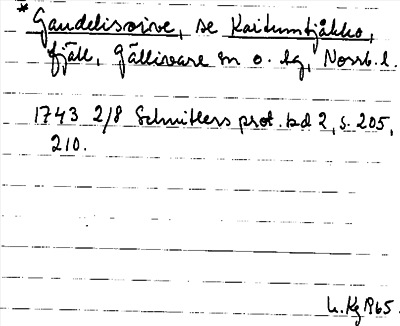 * Gaudelisvoive, se Kaitumtjåkko,
fjäll, Gällivare sn o. lg, Norrb. l.
1743 2/8 Schnitlers prot. bd 2, s. 205,
210.